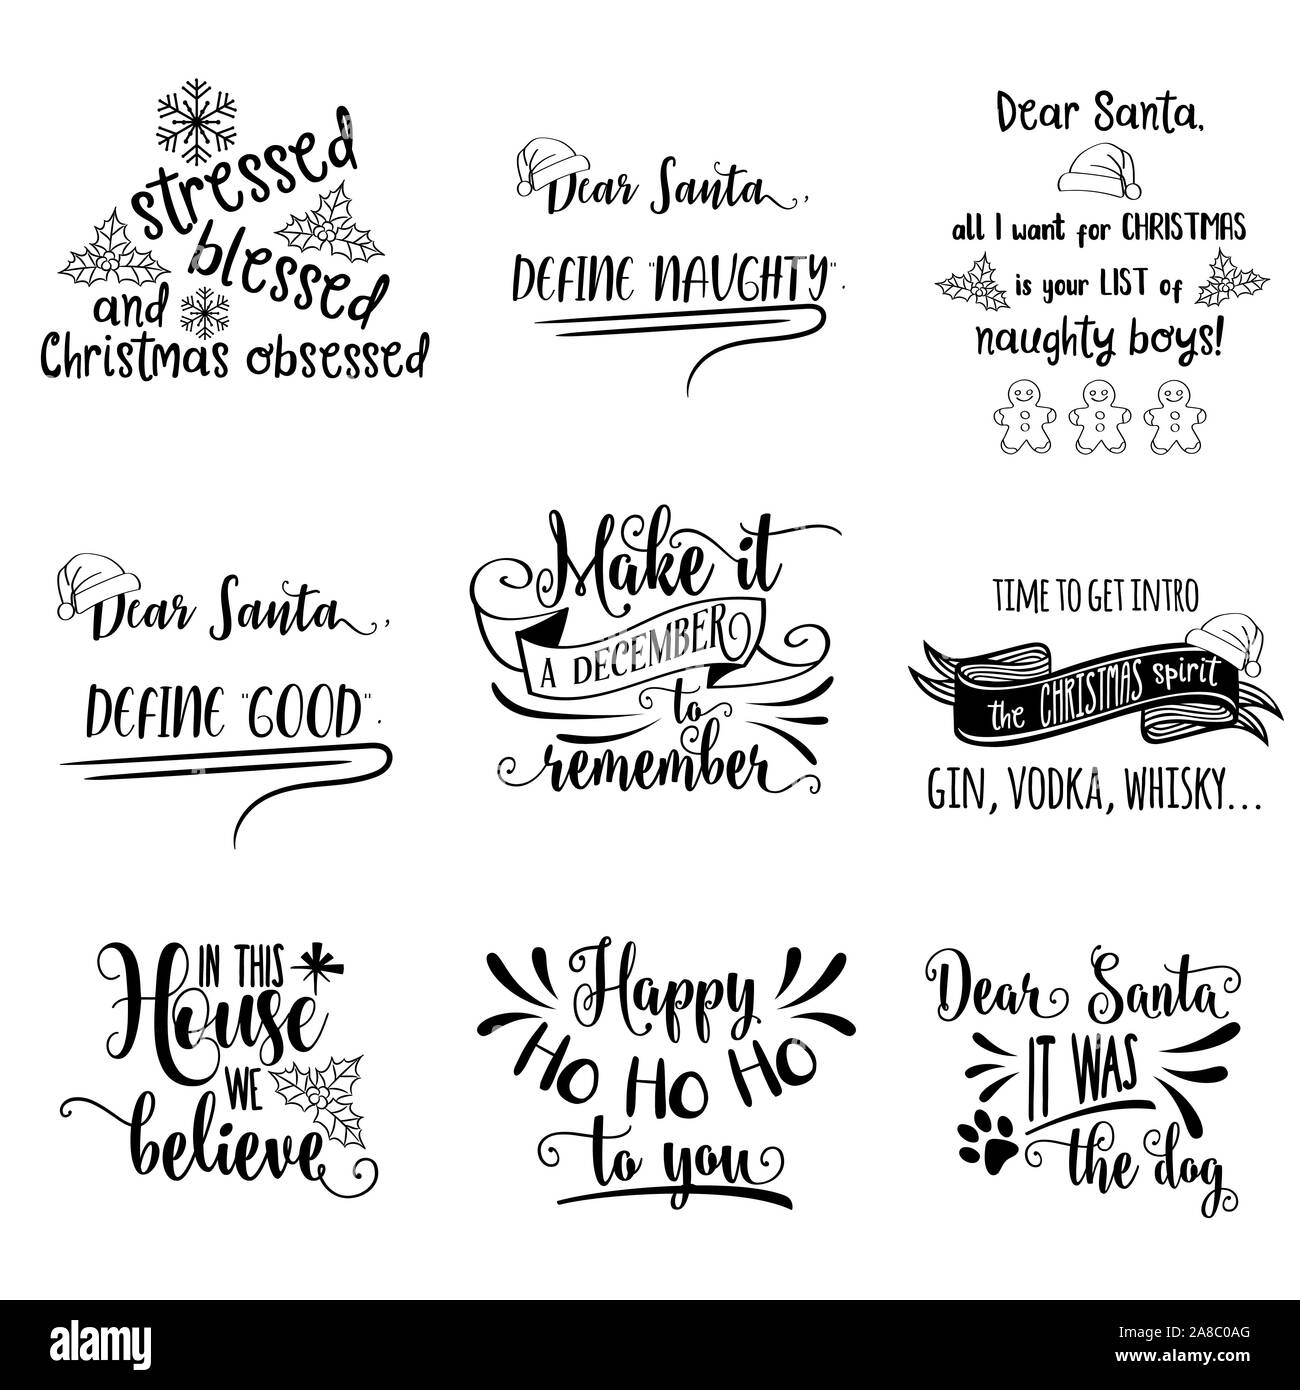 stressed
blessed
and
Christmas obsessed
Dear Santa,
DEFINE "NAUGHTY".
Dear Santa,
all I want for CHRISTMAS
is your LIST of
naughty boys!
Dear Santa,
DEFINE "GOOD".
Make it
A DECEMBER
to
remember
TIME TO GET INTRO
the CHRISTMAS spirit
GIN, VODKA, WHISKY...
IN THIS
House
WE
believe
Happy
HO HO HO
to you
Dear Santa
IT WAS
the dog
alamy
Image ID: 2A8C0AG
www.alamy.com